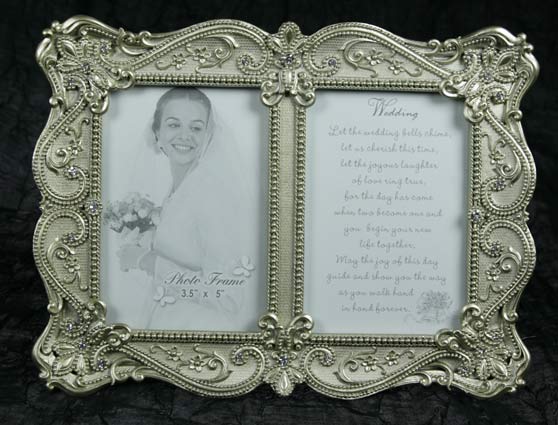 Photo Frame
3.5" x 5"
Wedding
Let the wedding bells chime,
let us cherish this time,
let the joyous laughter
of love ring true,
for the day has come
when two become one and
you begin your new
life together.
May the joy of this day
guide and show you the way
as you walk hand
in hand forever.